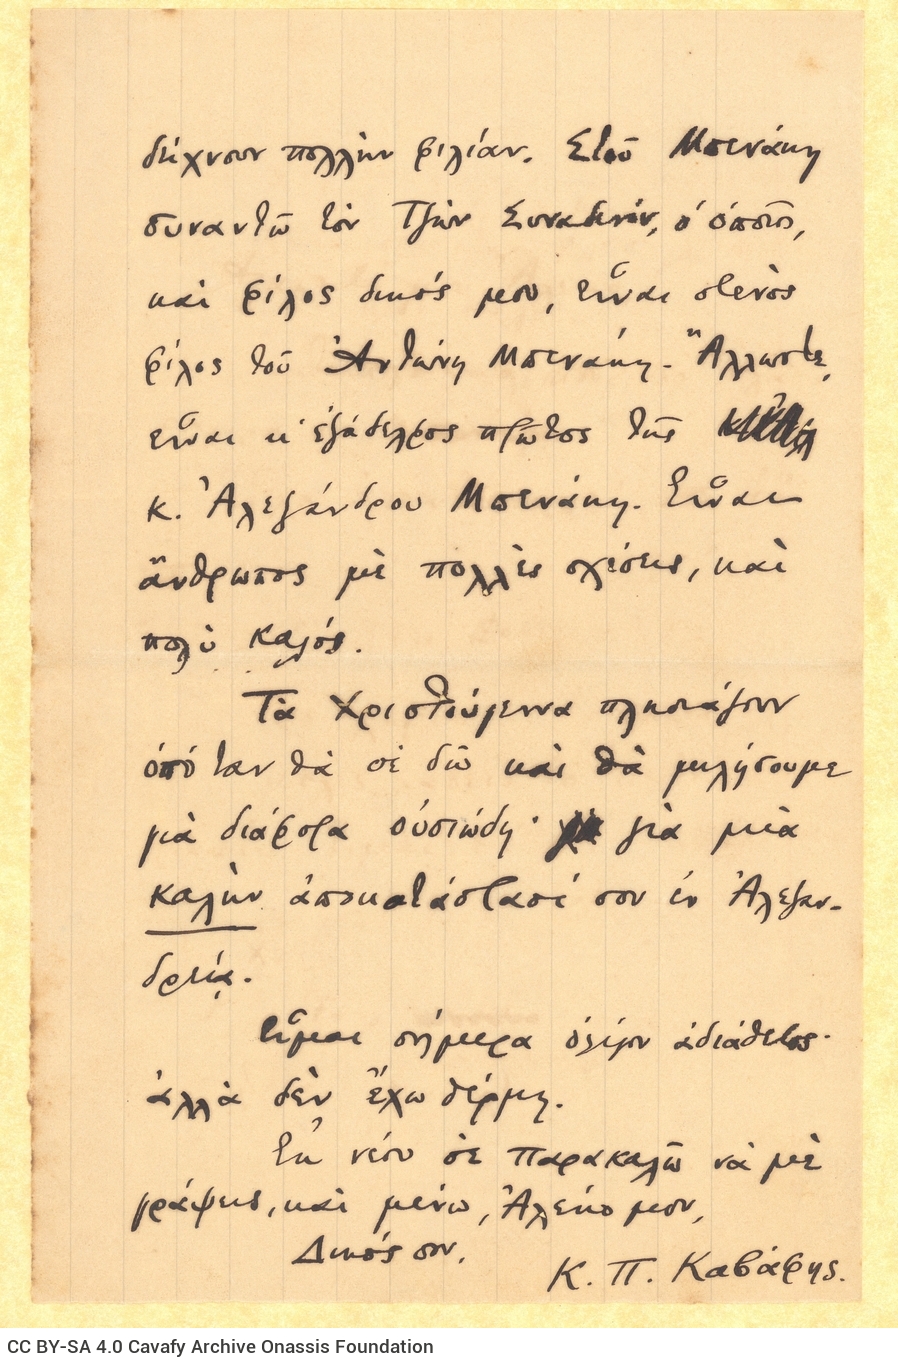 δείχνουν πολλὴν φιλίαν. Στοῦ Μπενάκη
συναντῶ τὸν Τζὼν Συναδινόν, ὁ ὁποῖος,
καὶ φίλος δικός μου, εἶναι στενὸς
φίλος τοῦ Ἀντώνη Μπενάκη. Ἄλλωστε,
εἶναι κ' ἐξάδελφος πρῶτος τῆς
κ. Ἀλεξάνδρου Μπενάκη. Εἶναι
ἄνθρωπος μὲ πολλὲς σχέσεις, καὶ
πολὺ καλός.
Τὰ Χριστούγεννα πλησιάζουν
ὁπόταν θὰ σὲ δῶ καὶ θὰ μιλήσουμε
γιὰ διάφορα οὐσιώδη· γιὰ μιὰ
καλὴν ἀποκατάστασί σου ἐν Ἀλεξαν-
δρείᾳ.
Εἶμαι σήμερα ὀλίγον ἀδιάθετος·
ἀλλὰ δὲν ἔχω θέρμη.
Ἐκ νέου σὲ παρακαλῶ νὰ μὲ
γράψεις, καὶ μένω, Ἀλέκο μου,
Δικός σου,
Κ. Π. Καβάφης.
CC BY-SA 4.0 Cavafy Archive Onassis Foundation